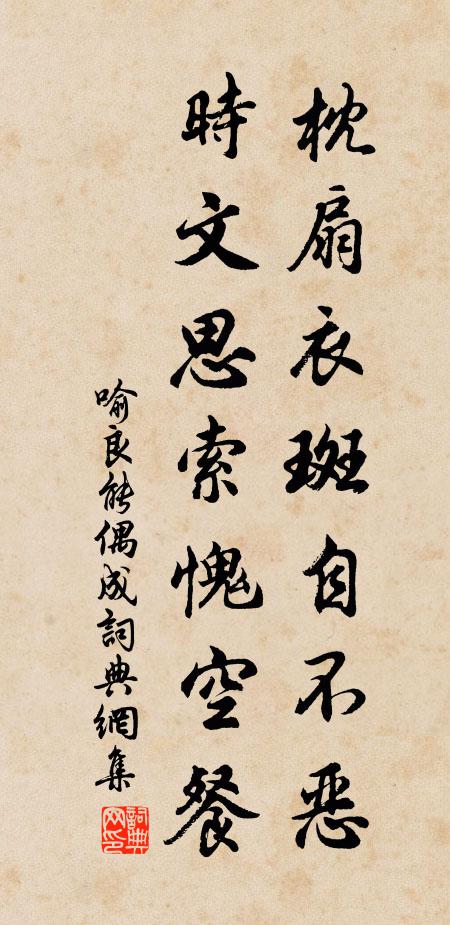 枕扇衣斑自不恶
時文思索愧空餐
喻良能偶成詞典網集
詞典網印